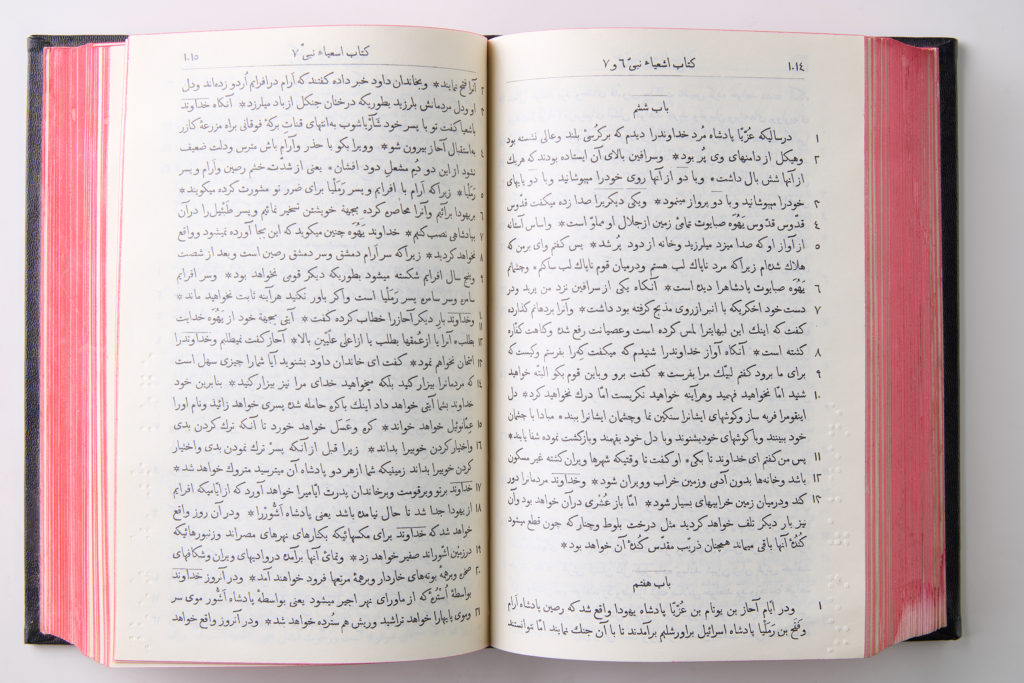 ١٠١٤
كتاب اشعياء نبی ٦ و ٧
باب ششم
١ درساليكه عُزِّيّا پادشاه مُرد خداوندرا ديدم كه بركُرسیِ بلند وعالی نشسته بود
٢ وهيكل از دامنهای وی پُر بود * وسرافين بالای آن ايستاده بودند كه هريك
از آنها شش بال داشت * وبا دو از آنها روی خودرا ميپوشانيد وبا دو پايهای
٣ خودرا ميپوشانيد وبا دو پرواز مينمود * ويكی ديگريرا صدا زده ميگفت قدّوس
٤ قدّوس قدّوس يَهُوَه صبايوت تمامیِ زمين ازجلال او مملوّ است * واساس آستانه
٥ از آواز او كه صدا ميزد ميلرزيد وخانه از دود پُر شد * پس گفتم وای برمن كه
هلاك شدهام زيراكه مرد ناپاك لب هستم ودرميان قوم ناپاك لب ساكنم وچشمانم
٦ يَهُوَه صبايوت پادشاهرا ديده است * آنگاه يكی از سرافين نزد من پريد ودر
٧ دست خود اخگريكه با انبر ازروی مذبح گرفته بود داشت * وآنرا بردهانم گذارده
گفت كه اينك اين لبهايترا لمس كرده است وعصيانت رفع شده وگناهت كفّاره
٨ گشته است * آنگاه آواز خداوندرا شنيدم كه ميگفت كِهرا بفرستم وكيست كه
٩ برای ما برود گفتم لبّيك مرا بفرست * گفت برو وباين قوم بگو البتّه خواهيد
١٠ شنيد امّا نخواهيد فهميد وهرآينه خواهيد نگريست امّا درك نخواهيد كرد * دل
اينقومرا فربه ساز وگوشهای ايشانرا سنگين نما وچشمان ايشانرا ببند * مبادا با چشمان
خود ببينند وباگوشهای خودبشنوند وبا دل خود بفهمند وبازگشت نموده شفا يابند *
١١ پس من گفتم ای خداوند تا بكی * او گفت تا وقتيكه شهرها ويران گشته غير مسكون
١٢ باشد وخانه‌ها بدون آدمی وزمين خراب وويران شود * وخداوند مردمانرا دور
١٣ كند ودرميان زمين خرابيهای بسيار شود * امّا باز عُشری درآن خواهد بود وآن
نيز بار ديگر تلف خواهد گرديد مثل درخت بلوط وچنار كه چون قطع ميشود
كُندهٔ آنها باقی ميماند همچنان ذريّت مقدّس كُندهٔ آن خواهد بود *
باب هفتم
١ ودر ايّام آحاز بن يوتام بن عُزِّيّا پادشاه يهودا واقع شد كه رصين پادشاه اَرام
وفَقَح بن رَمَليا پادشاه اسرائيل براورشليم برآمدند تا با آن جنك نمايند امّا نتوانستند
كتاب اشعياء نبی ٧
١٠١٥
٢ آنرا فتح نمايند * وبخاندان داود خبر داده گفتند كه اَرام درافرايم اُردو زده‌اند ودل
٣ او ودل مردمانش بلرزيد بطوريكه درختان جنگل از باد ميلرزد * آنگاه خداوند
باشعيا گفت تو با پسر خود شَآرْياشوب به‌انتهای قنات بركهٔ فوقانی براه مزرعهٔ گازر
٤ به‌استقبال آحاز بيرون شو * وويرا بگو با حذر وآرام باش مترس ودلت ضعيف
نشود از اين دو دُمِ مشعلِ دود افشان * يعنی از شدّت خشم رصين واَرام وپسر
٥ رَمَليا * زيراكه اَرام با افرايم وپسر رَمَليا برای ضرر تو مشورت كرده ميگويند *
٦ بريهودا برآئيم وآنرا محاصره كرده بجههٔ خويشتن تسخير نمائيم وپسر طَبئيل را درآن
٧ بپادشاهی نصب كنيم * خداوند يَهُوَه چنين ميگويد كه اين بجا آورده نميشود وواقع
٨ نخواهد گرديد * زيراكه سر اَرام دمشق وسر دمشق رصين است وبعد از شصت
٩ وپنج سال افرايم شكسته ميشود بطوريكه ديگر قومی نخواهد بود * وسر افرايم
سامره وسر سامره پسر رَمَليا است واگر باور نكنيد هرآينه ثابت نخواهيد ماند *
١٠ وخداوند بار ديگر آحازرا خطاب كرده گفت * آيتی بجههٔ خود از يَهُوَه خدايت
١١
١٢ بطلب * آنرا يا ازعُمقها بطلب يا ازاعلیٰ علّيّين بالا * آحاز گفت نميطلبم وخداوندرا
١٣ امتحان نخواهم نمود * گفت ای خاندان داود بشنويد آيا شمارا چيزی سهل است
١٤ كه مردمانرا بيزار كنيد بلكه ميخواهيد خدای مرا نيز بيزار كنيد * بنابرين خود
خداوند بشما آيتی خواهد داد اينك باكره حامله شده پسری خواهد زائيد ونام اورا
١٥ عِمّانوئيل خواهد خواند * كره وعسل خواهد خورد تا آنكه ترك كردن بدی
١٦ واختيار كردن خوبيرا بداند * زيرا قبل از آنكه پسر ترك نمودن بدی واختيار
كردن خوبيرا بداند زمينيكه شما ازهر دو پادشاه آن ميترسيد متروك خواهد شد *
١٧ خداوند برتو وبرقومت وبرخاندان پدرت ايّاميرا خواهد آورد كه از ايّاميكه افرايم
١٨ از يهودا جدا شد تا حال نيامده باشد يعنی پادشاه اَشّوررا * ودر آن روز واقع
خواهد شد كه خداوند برای مگسهائيكه بكنارهای نهرهای مصراند وزنبورهائيكه
١٩ درزمين اَشّوراند صفير خواهد زد * وتمامیِ آنها برآمده درواديهای ويران وشكافهای
٢٠ صخره وبرهمهٔ بوته‌های خاردار وبرهمهٔ مرتعها فرود خواهند آمد * ودر آنروز خداوند
بواسطهٔ اُستُرهٔ كه از ماورای نهر اجير ميشود يعنی بواسطهٔ پادشاه اَشّور موی سر
٢١ وموی پايهارا خواهد تراشيد وريش هم سترده خواهد شد * ودر آنروز واقع خواهد